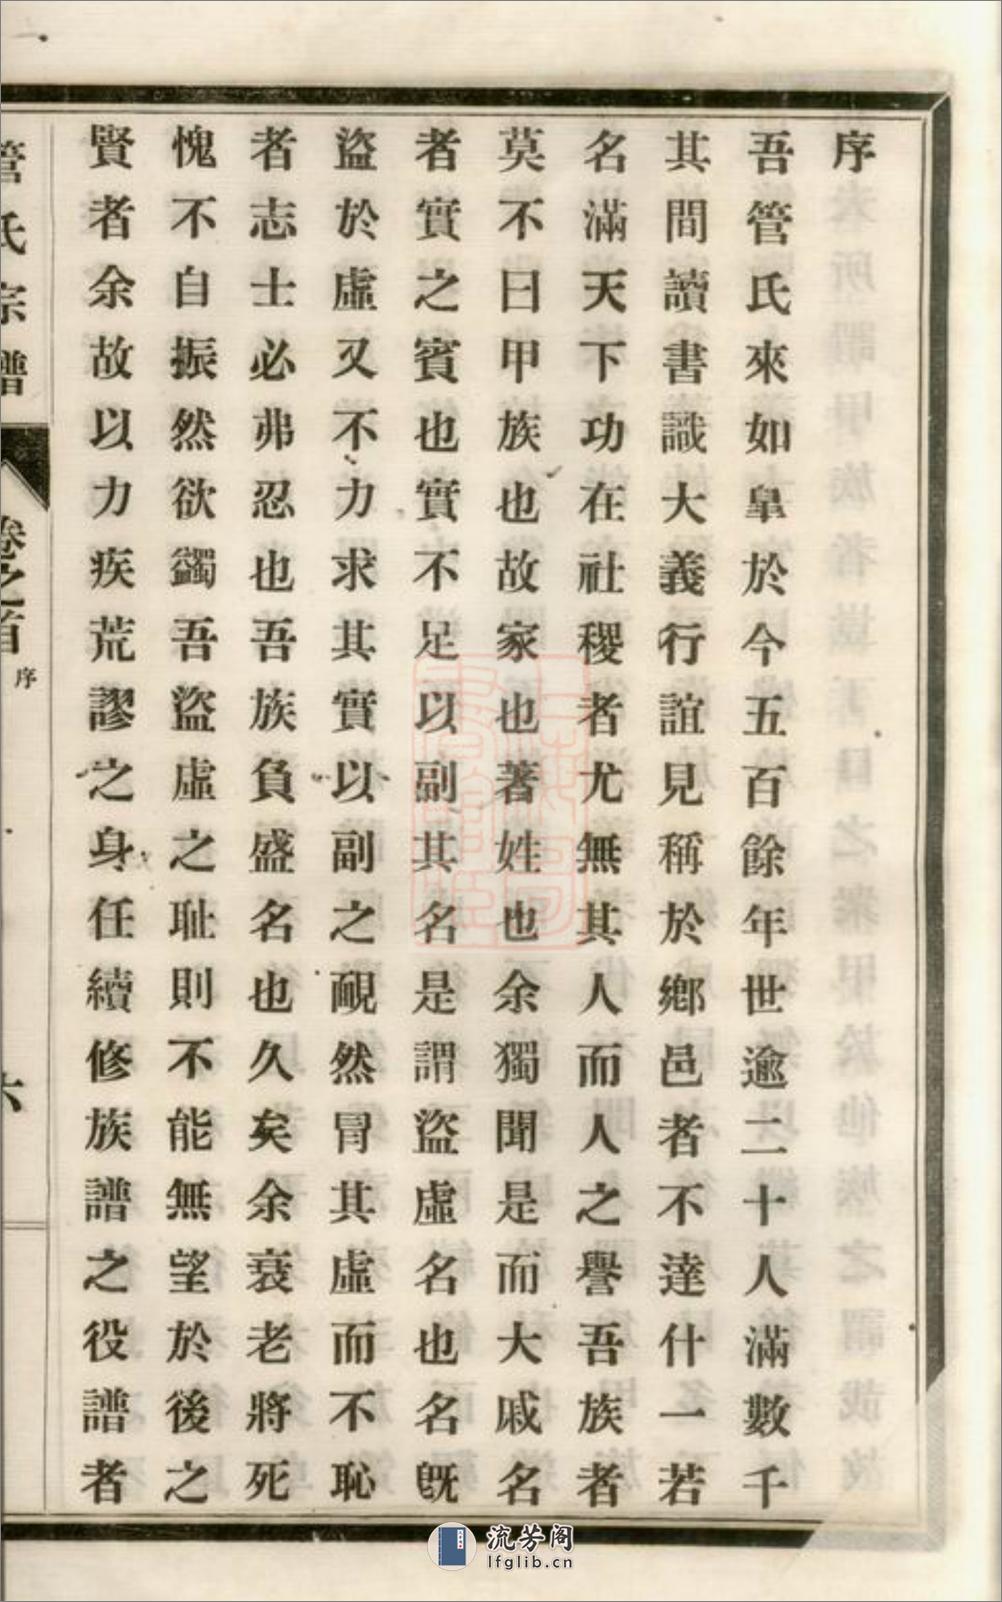 序
吾管氏來如臯於今五百餘年世逾二十人滿數千
其間讀書識大義行誼見稱於鄉邑者不達什一若
名滿天下功在社稷者尤無其人而人之譽吾族者
莫不曰甲族也故家也著姓也余獨聞是而大戚名
者實之賓也實不足以副其名是謂盜虛名也名旣
盜於虛又不力求其實以副之靦然冒其虛而不恥
者志士必弗忍也吾族負盛名也久矣余衰老將死
愧不自振然欲蠲吾盜虛之耻則不能無望於後之
賢者余故以力疾荒謬之身任續修族譜之役譜者
管氏宗譜
卷之首
序
六
流芳阁
lfglib.cn